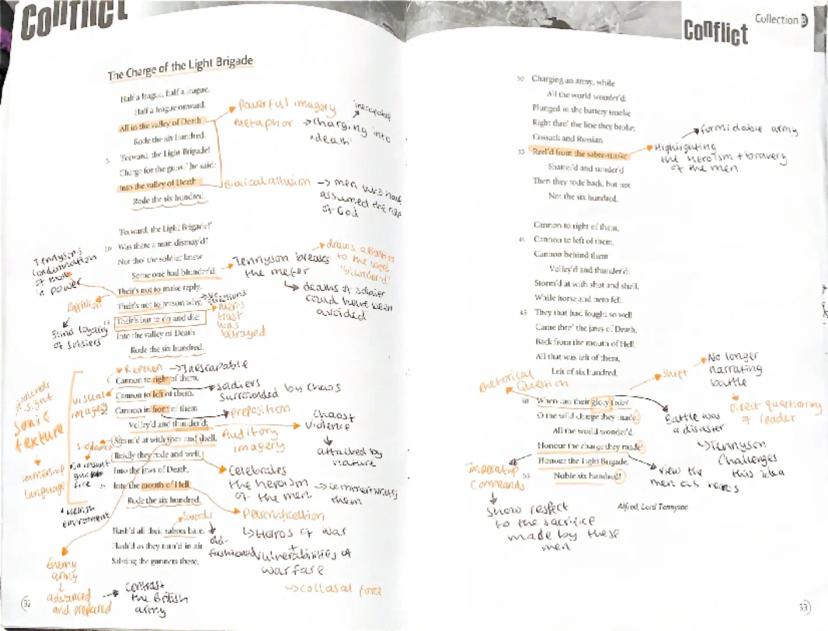 Conflict
The Charge of the Light Brigade
Half a league, half a league,
Half a league onward,
All in the valley of Death
Rode the six hundred.
5
'Forward, the Light Brigade!
Charge for the guns!' he said:
Into the valley of Death
Rode the six hundred.
'Forward, the Light Brigade!'
10
Was there a man dismay'd?
Not tho' the soldier knew
Some one had blunder'd:
Their's not to make reply,
Their's not to reason why,
15
Their's but to do and die:
Into the valley of Death
Rode the six hundred.
Cannon to right of them,
Cannon to left of them,
20
Cannon in front of them
Volley'd and thunder'd;
Storm'd at with shot and shell,
Boldly they rode and well,
Into the jaws of Death,
25
Into the mouth of Hell
Rode the six hundred.
Flash'd all their sabres bare,
Flash'd as they turn'd in air
Sabring the gunners there,
32
Powerful imagery
inescapable
metaphor → charging into
'death'
Biblical allusion → men
assumed the role
of God
Tennyson's
condemnation
of
power
Tennyson breaks
the meter
draws attention
to the word
'blunder'd'
deaths of soldier
could have been
avoided
Blind loyalty
of soldiers
trust
was
betrayed
→ Inescapable
soldiers
surrounded by chaos
preposition
Auditory
imagery
chaos +
violence
attacked by
nature
visual
imagery
sonic
texture
language
Hellish
environment
Celebrates
the heroism
of the men
them
Personification
Horrors of war
+
vulnerabilities of
warfare
→ colossal force
swords
old-
fashioned
Enemy
army
advanced
and prepared
→ contrast
the British
army
Collection 3
Conflict
30
Charging an army, while
All the world wonder'd:
Plunged in the battery smoke
Right thro' the line they broke;
Cossack and Russian
35
Reel'd from the sabre-stroke
Shatter'd and sunder'd.
Then they rode back, but not
Not the six hundred.
Cannon to right of them,
40
Cannon to left of them,
Cannon behind them
Volley'd and thunder'd;
Storm'd at with shot and shell,
While horse and hero fell,
45
They that had fought so well
Came thro' the jaws of Death,
Back from the mouth of Hell,
All that was left of them,
Left of six hundred.
50
When can their glory fade?
O the wild charge they made!
All the world wonder'd.
Honour the charge they made!
Honour the Light Brigade,
55
Noble six hundred!
Alfred, Lord Tennyson
33
formidable army
Highlighting
the heroism + bravery
of the men
Rhetorical
Question
shift
No longer
narrating
battle
Direct questioning
of reader
Battle was
a disaster
Tennyson
challenges
this idea
view the
men as heroes
Imperative
commands
show respect
to the sacrifice
made by these
men